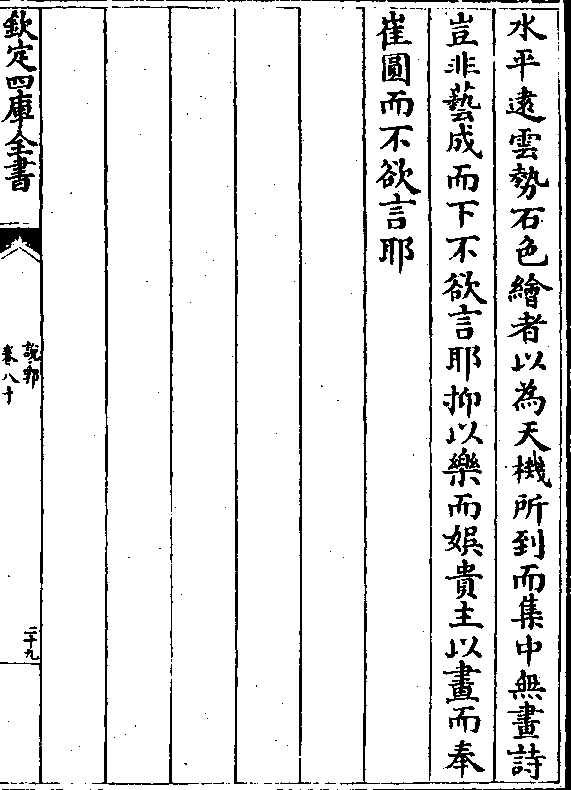 水平遠雲勢石色繪者以為天機所到而集中無畫詩
豈非藝成而下不欲言耶抑以樂而娯貴主以畫而奉
崔圓而不欲言耶
欽定四庫全書
說郛
卷八十
二十九